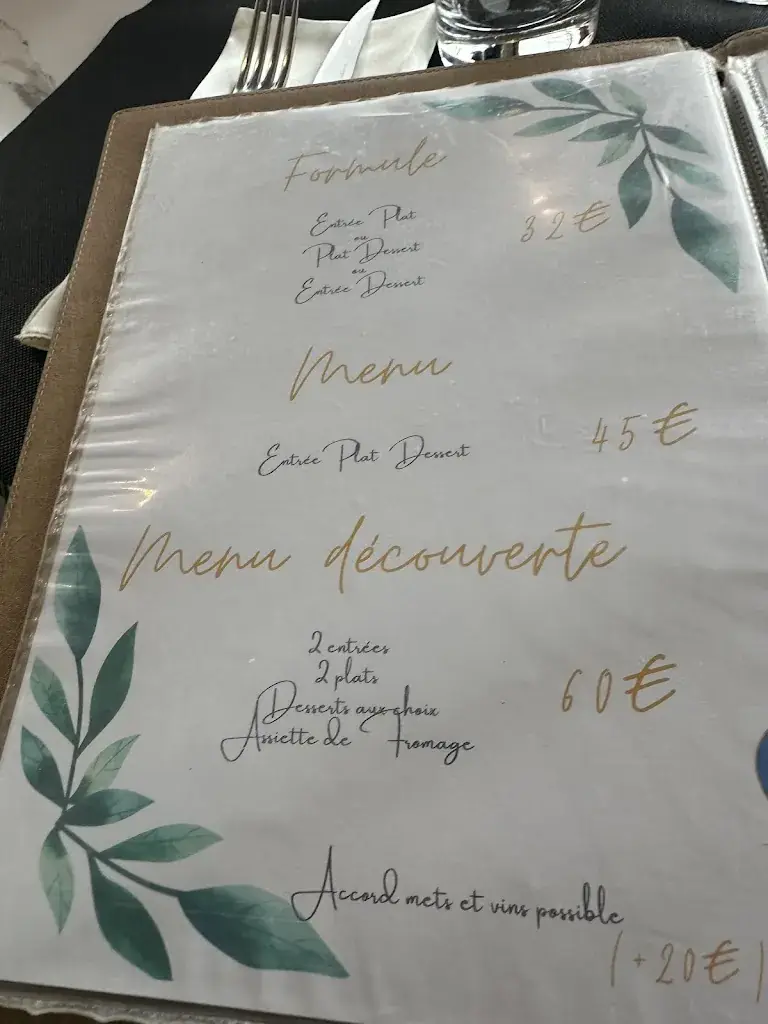 Formule
Entrée Plat
ou
Plat Dessert
ou
Entrée Dessert
32€
Menu
Entrée Plat Dessert
45€
Menu découverte
2 entrées
2 plats
Desserts aux choix
Assiette de Fromage
60€
Accord mets et vins possible
(+20€)